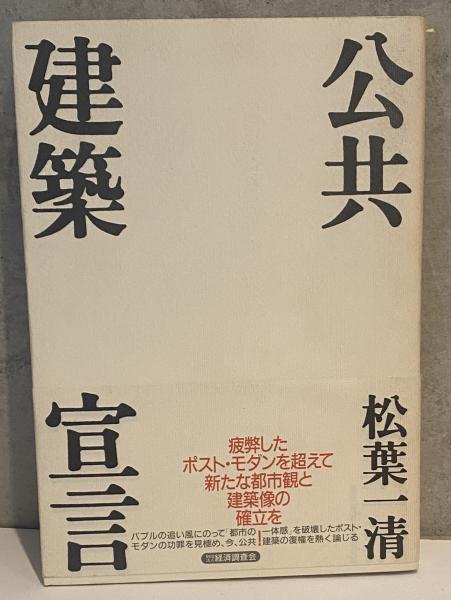 公共
建築
宣言
松葉一清
疲弊した
ポスト・モダンを超えて
新たな都市観と
建築像の
確立を!
バブルの追い風にのって「都市の一体感」を破壊したポスト・
モダンの功罪を見極め、今、公共建築の復権を熱く論じる
経済調査会